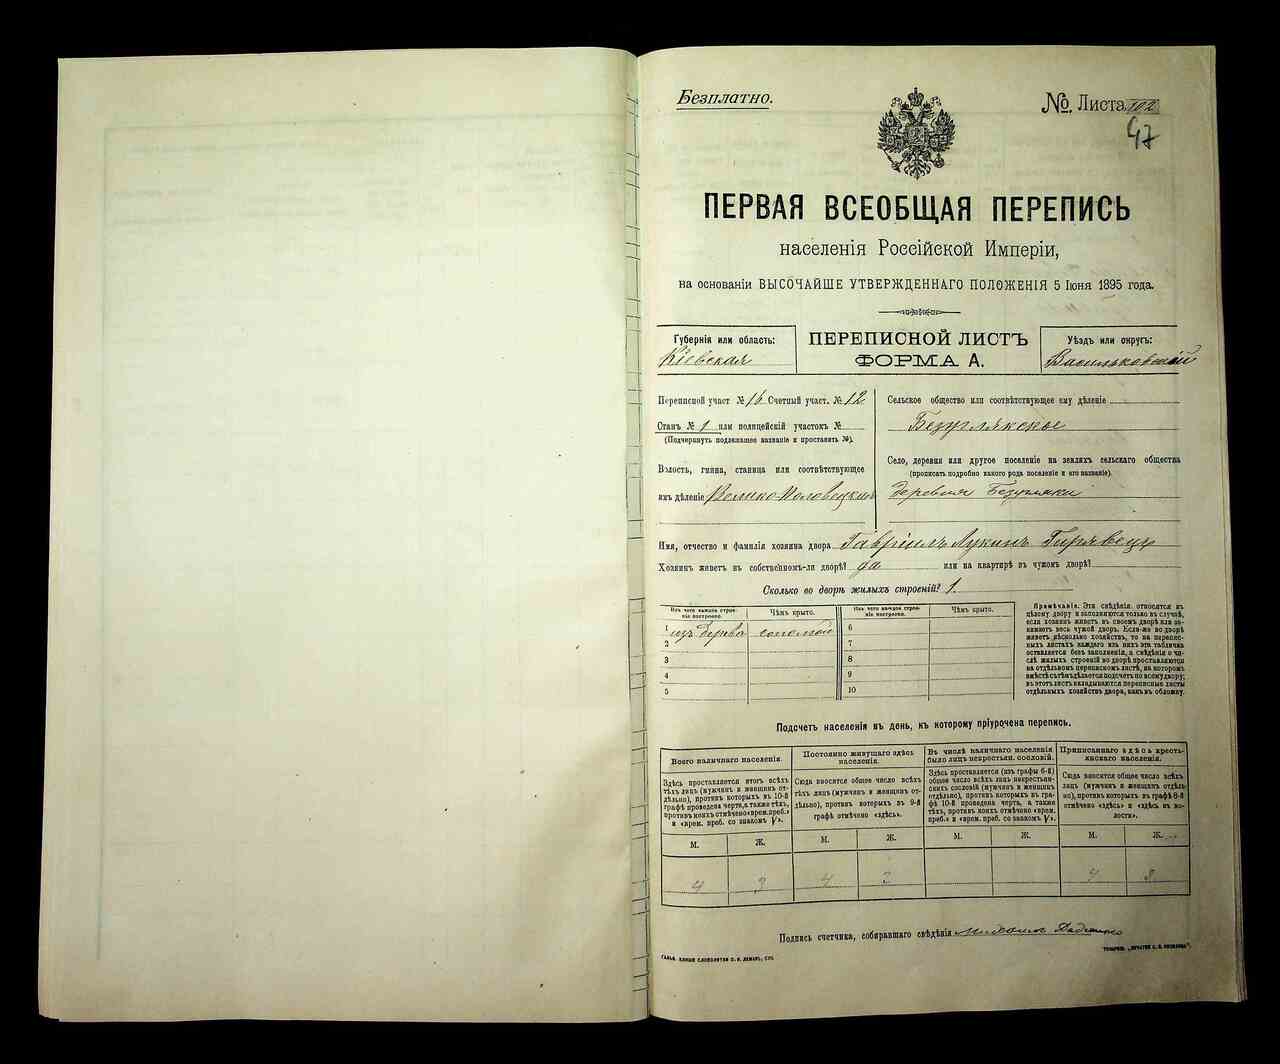 Безплатно.
№. Листа 102
47
ПЕРВАЯ ВСЕОБЩАЯ ПЕРЕПИСЬ
населенія Россійской Имперіи,
на основаніи ВЫСОЧАЙШЕ УТВЕРЖДЕННАГО ПОЛОЖЕНІЯ 5 Іюня 1895 года.
Губернія или область:
Кіевская
ПЕРЕПИСНОЙ ЛИСТЪ
ФОРМА А.
Уѣздъ или округъ:
Васильковскій
Переписной участ № 16 Счетный участ. № 12
Станъ № 1 или полицейскій участокъ №
(Подчеркнуть подлежащее названіе и проставить №).
Волость, гмина, станица или соотвѣтствующее
имъ дѣленіе Велико-Половецкая
Сельское общество или соотвѣтствующее ему дѣленіе
Безуглякское
Село, деревня или другое поселеніе на земляхъ сельскаго общества
(прописать подробно какого рода поселеніе и его названіе).
деревня Безугляки
Имя, отчество и фамилія хозяина двора Гавріилъ Лукинъ Гирявецъ
Хозяинъ живетъ въ собственномъ-ли дворѣ? да или на квартирѣ въ чужомъ дворѣ?
Сколько во дворѣ жилыхъ строеній? 1.
Изъ чего каждое строеніе построено.
Чѣмъ крыто.
Изъ чего каждое строеніе построено.
Чѣмъ крыто.
1 изъ дерева соломой
2
3
4
5
6
7
8
9
10
Примѣчаніе. Эти свѣдѣнія относятся къ
цѣлому двору и заполняются только въ случаѣ,
если хозяинъ живетъ въ своемъ дворѣ или занимаетъ
весь чужой дворъ. Если-же во дворѣ
живетъ нѣсколько хозяйствъ, то на переписныхъ
листахъ каждаго изъ нихъ эта табличка
оставляется безъ заполненія, а свѣдѣнія о числѣ
жилыхъ строеній во дворѣ проставляются
на отдѣльномъ переписномъ листѣ, на которомъ
вмѣстѣ съ тѣмъ дѣлается подсчетъ по всему двору;
въ этотъ листъ вкладываются переписные листы
отдѣльныхъ хозяйствъ двора, какъ въ обложку.
Подсчетъ населенія въ день, къ которому пріурочена перепись.
Всего наличнаго населенія.
Здѣсь проставляется итогъ всѣхъ
тѣхъ лицъ (мужчинъ и женщинъ отдѣльно),
противъ которыхъ въ 10-й
графѣ проведена черта, а также тѣхъ,
противъ коихъ отмѣчено «врем. преб.»
и «врем. преб. со знакомъ V».
Постоянно живущаго здѣсь
населенія.
Сюда вносится общее число всѣхъ
тѣхъ лицъ (мужчинъ и женщинъ отдѣльно),
противъ которыхъ въ 9-й
графѣ отмѣчено «здѣсь».
Въ числѣ наличнаго населенія
было лицъ некрестьян. сословій.
Здѣсь проставляется (изъ графы 6-й)
общее число всѣхъ лицъ некрестьянскихъ
сословій (мужчинъ и женщинъ
отдѣльно), противъ которыхъ въ графѣ
10-й проведена черта, а также
тѣхъ, противъ коихъ отмѣчено «врем.
преб.» и «врем. преб. со знакомъ V».
Приписаннаго здѣсь крестьянскаго
населенія.
Сюда вносится общее число всѣхъ
лицъ (мужчинъ и женщинъ отдѣльно),
противъ которыхъ въ графѣ 8-й
отмѣчено «здѣсь» и «здѣсь въ волости».
М. Ж. М. Ж. М. Ж. М. Ж.
4 3 4 3 4 3
Подпись счетчика, собиравшаго свѣдѣнія